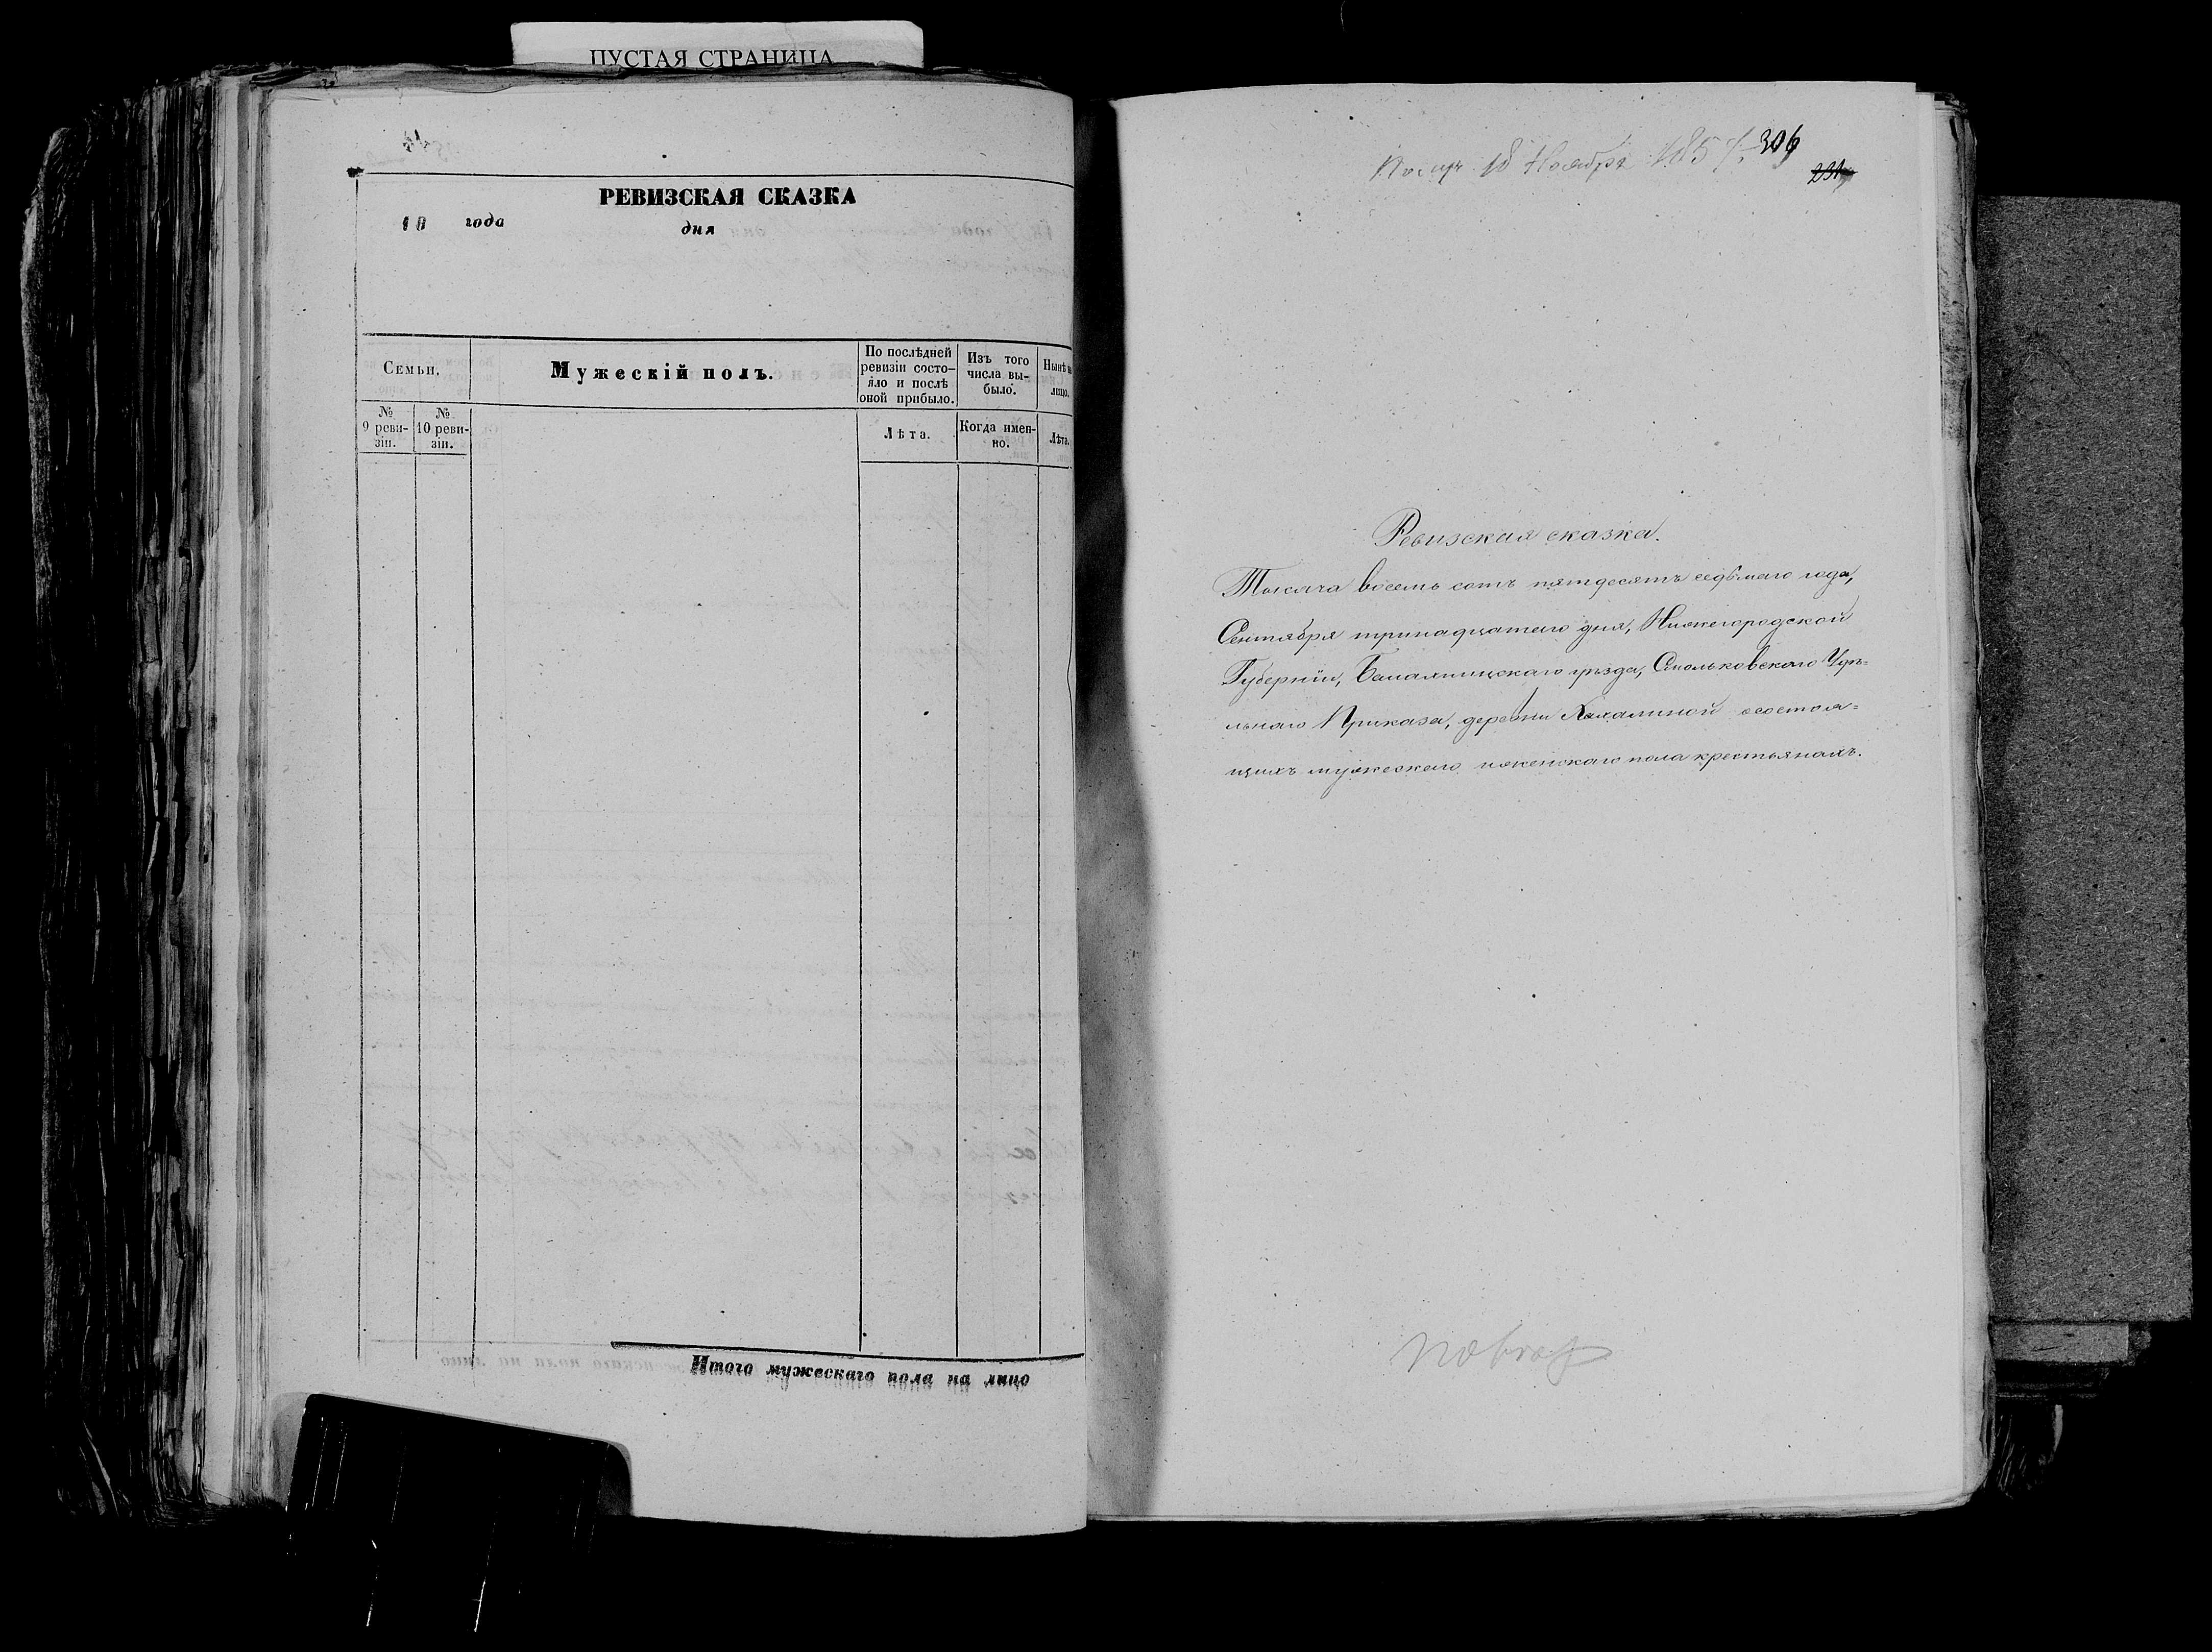 ПУСТАЯ СТРАНИЦА
РЕВИЗСКАЯ СКАЗКА
18 года дня
Семьи.
Мужескій полъ.
По послѣдней
ревизіи состо-
яло и послѣ
оной прибыло.
Изъ того
числа вы-
было.
Нынѣ на
лицо.
№
9 реви-
зіи.
№
10 реви-
зіи.
Лѣта.
Когда имен-
но.
Лѣта.
Итого мужескаго пола на лицо
18 Ноября 1857. 306
Ревизская сказка.
Тысяча восемь сотъ пятдесятъ седьмаго года,
Сентября тринадцатаго дня, Нижегородской
Губерніи, Балахнинскаго уѣзда, Смольковскаго Удѣ=
льнаго Приказа, деревни о состоя=
щихъ мужескаго и женскаго пола крестьянахъ.